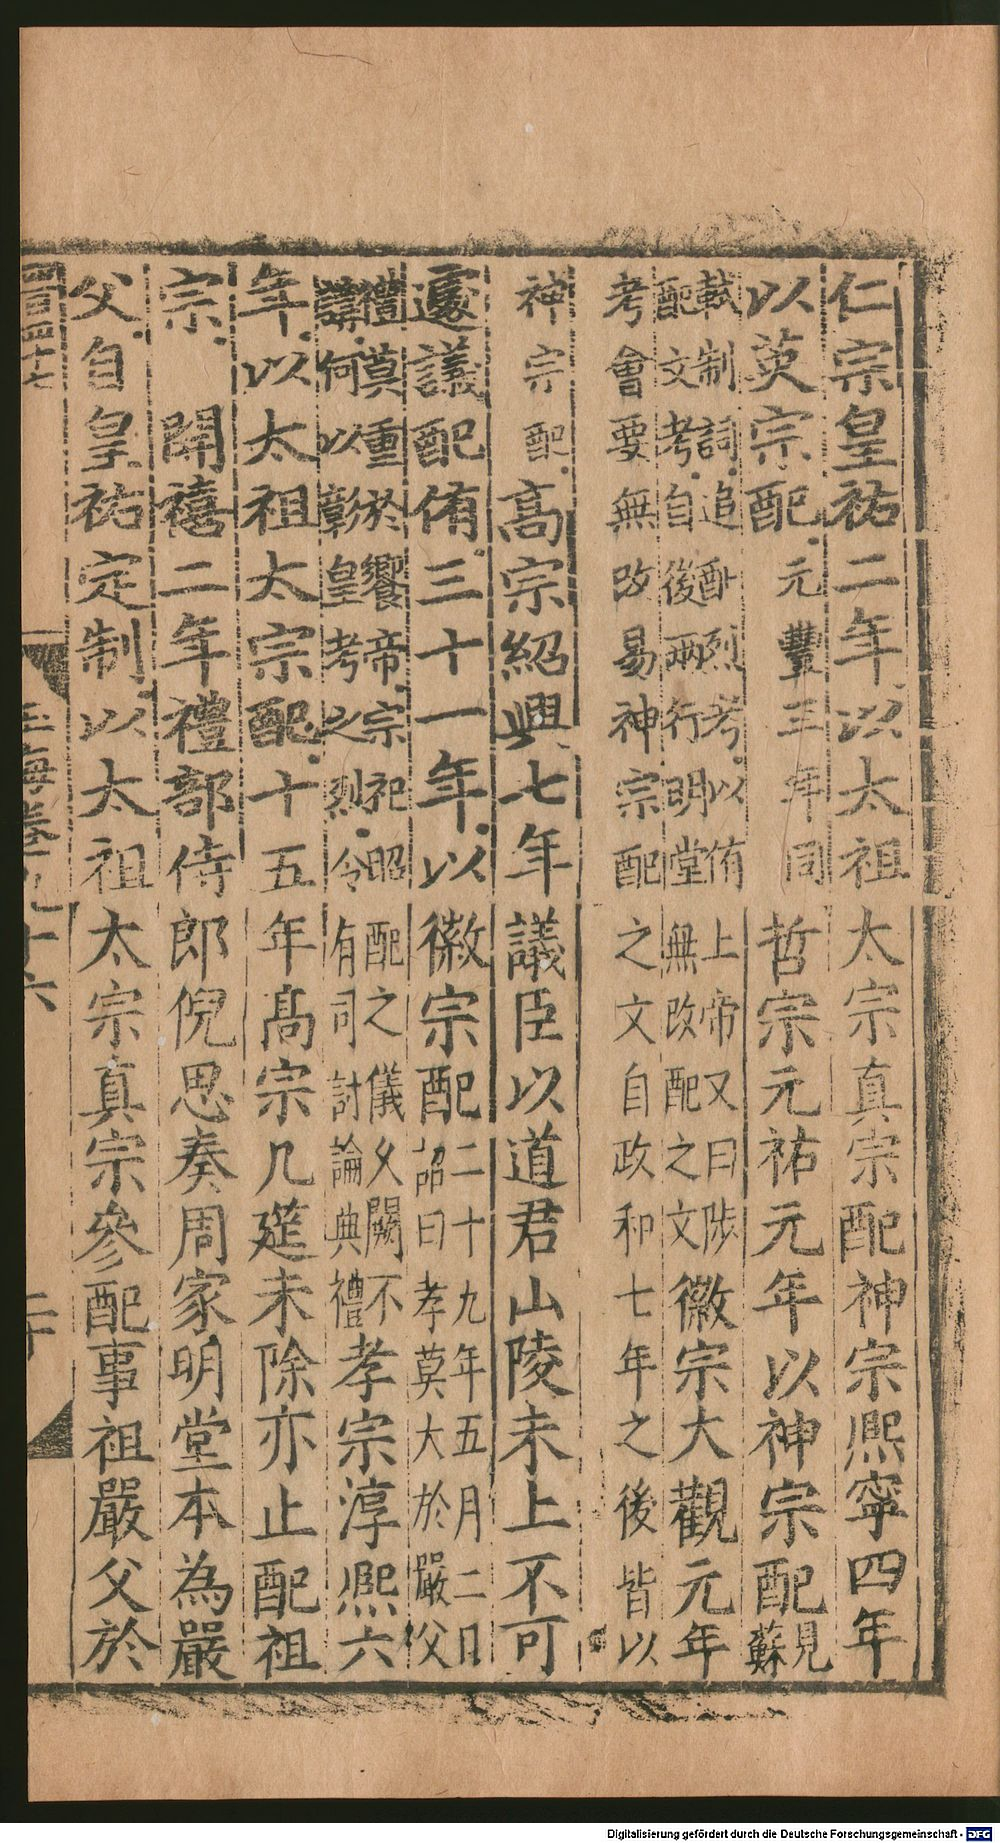 仁宗皇祐二年以太祖太宗真宗配神宗熙寧四年
以英宗配元豐三年同哲宗元祐元年以神宗配見
蘇
軾制詞追配烈考以侑上帝又曰陟
配文考自後兩行明堂無改配之文徽宗大觀元年
考會要無改易神宗配之文自政和七年之後皆以
神宗配高宗紹興七年議臣以道君山陵未上不可
遽議配侑三十一年以徽宗配二十九年五月二日
詔曰孝莫大於嚴父
禮莫重於饗帝宗祀昭配之儀久闕不
講何以彰皇考之烈令有司討論典禮孝宗淳熙六
年以太祖太宗配十五年高宗几筵未除亦止配祖
宗開禧二年禮部侍郎倪思奏周家明堂本為嚴
父自皇祐定制以太祖太宗真宗參配事祖嚴父於
玉海卷九十六
二十
Digitalisierung gefördert durch die Deutsche Forschungsgemeinschaft - DFG